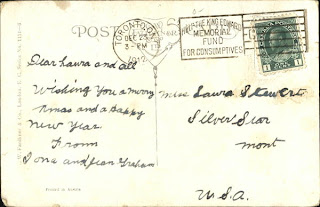 POST
TORONTO, ONT.
DEC 23
3-PM
1912
THE KING EDWARD
MEMORIAL
FUND
FOR CONSUMPTIVES
1
Dear Laura and all
Wishing You a merry
Xmas and a Happy
New Year
From
Iona and Jean Graham
Miss Laura Stewart
Silver Star
Mont
U.S.A.